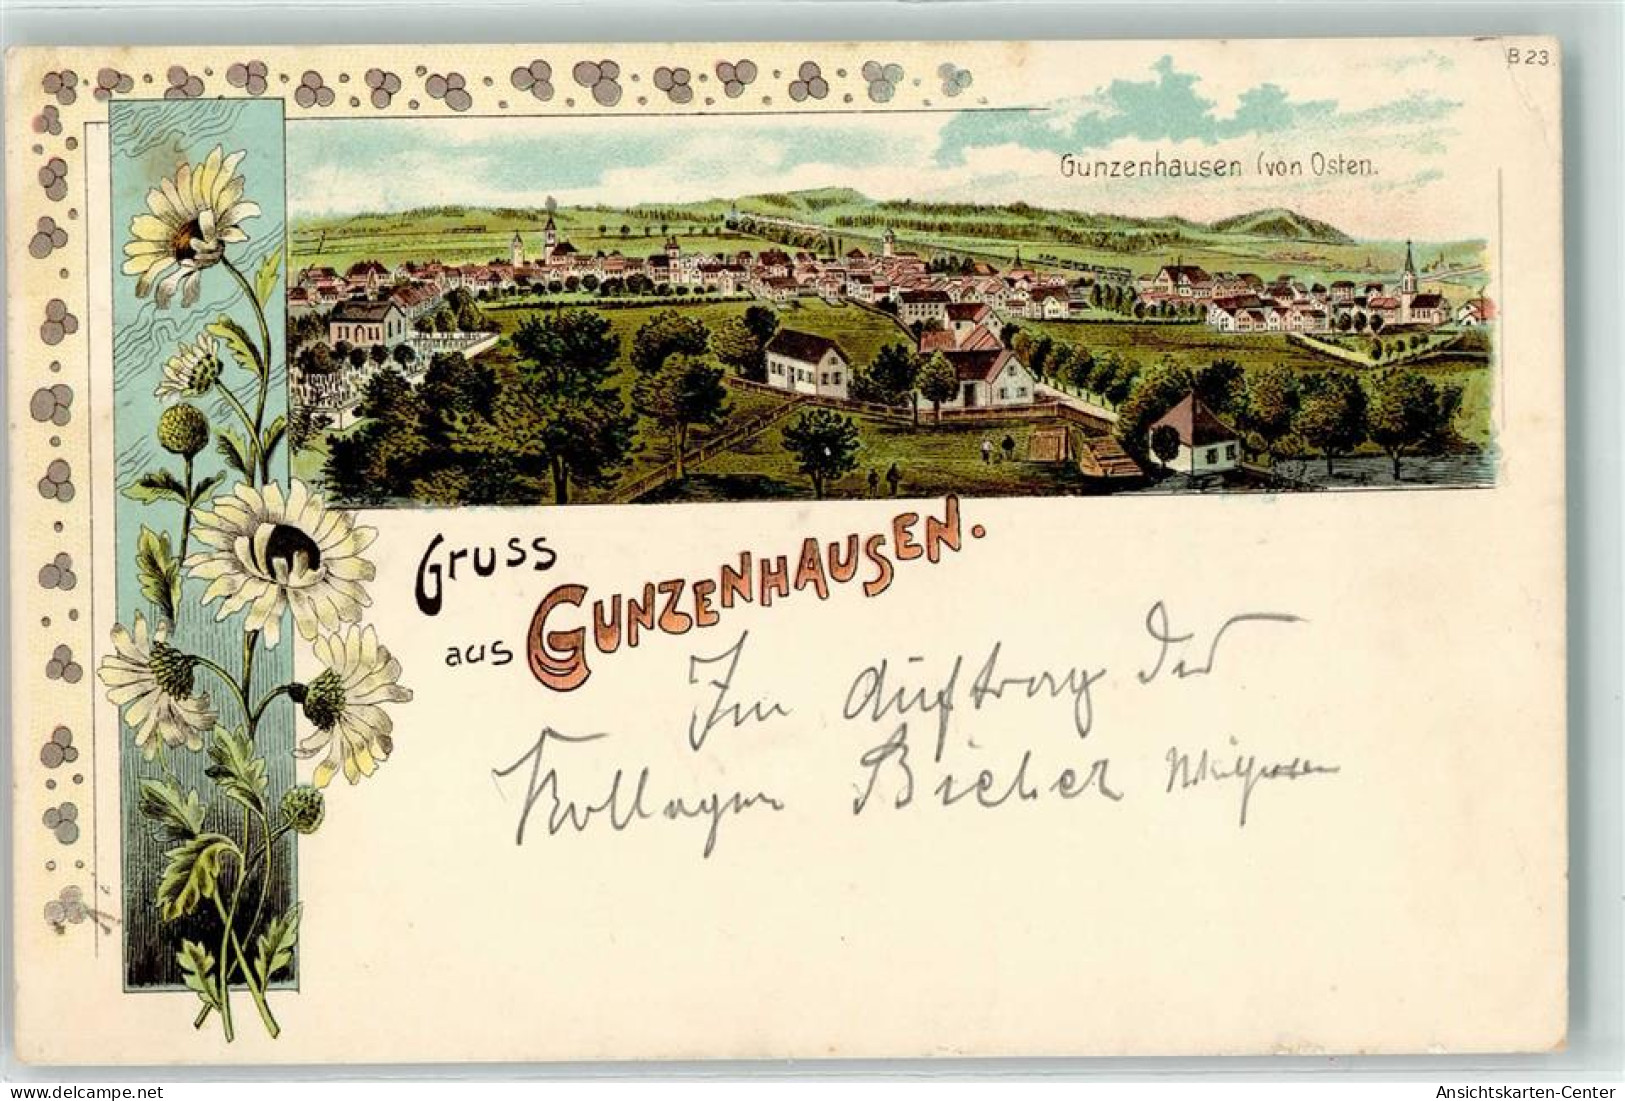 B 23.
Gunzenhausen (von Osten.
Gruss
aus GUNZENHAUSEN.
Im Auftrag der
Kollegen Bieber
delcampe.net
Ansichtskarten-Center